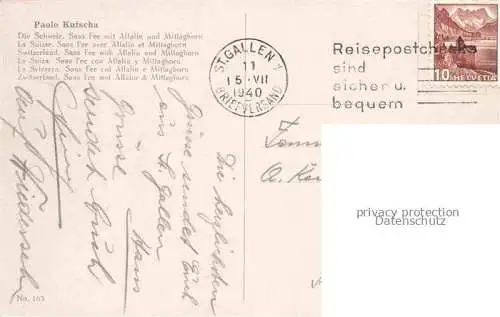 Paolo Kutscha
Die Schweiz. Saas Fee mit Allalin und Mittaghorn
La Suisse. Saas Fee avec Allalin et Mittaghorn
Switzerland. Saas Fee with Allalin and Mittaghorn
La Suiza. Saas Fee con Allalin y Mittaghorn
La Svizzera. Saas Fee con Allalin e Mittaghorn
Zwitserland. Saas Fee met Allalin & Mittaghorn
ST. GALLEN 1
11
15·VII
1940
BRIEFVERSAND
Reisepostchecks
sind
sicher u.
bequem
10 HELVETIA
Die herzlichsten
Grüsse sendet Euch
aus St. Gallen
Hans
Grüsse
sendet Euch
auf Wiedersehn
privacy protection
datenschutz
No. 165